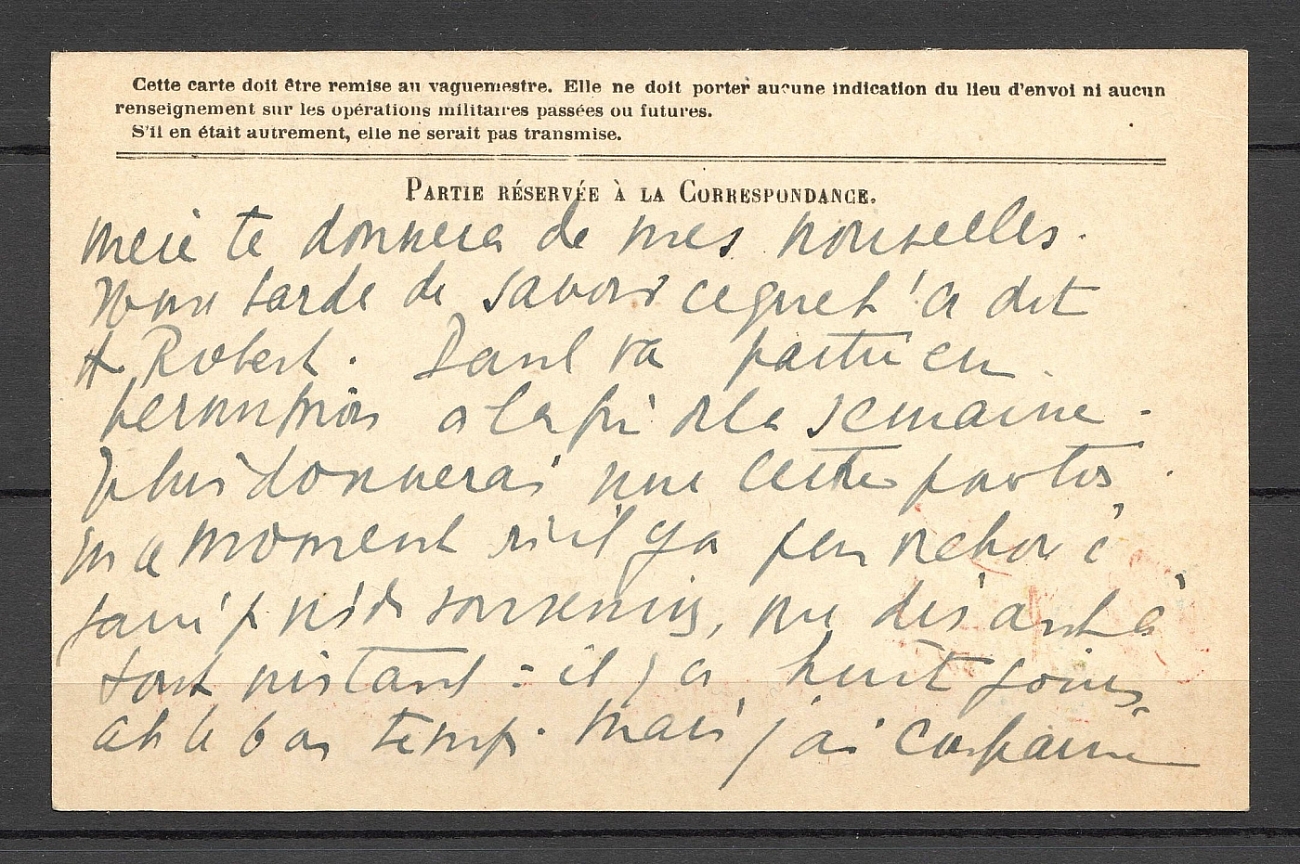 Cette carte doit être remise au vaguemestre. Elle ne doit porter aucune indication du lieu d'envoi ni aucun
renseignement sur les opérations militaires passées ou futures.
S'il en était autrement, elle ne serait pas transmise.
PARTIE RÉSERVÉE À LA CORRESPONDANCE.
mere te donnera de mes nouvelles.
tarde de savoir ce que t'a dit
Robert. Paul va partir en
permission a la fin de la semaine.
donnerai une lettre
En ce moment il y a peu
souvenirs, me disant à
tout instant : il y a huit jours
ah le bon temps. Mais j'ai confiance